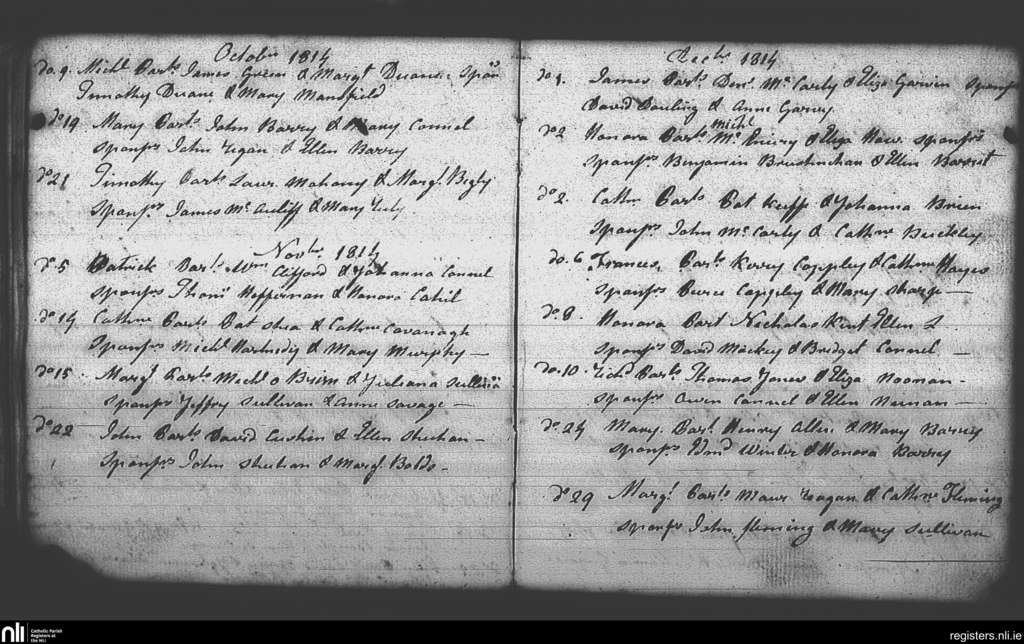 October 1814
do 9. Michl Parts James Green & Margt Duane Spon
Timothy Duane & Mary Mansfield
do 19 Mary Parts John Barry & Mary Connel
Sponsrs John Regan & Ellen Barry
do 21 Timothy Parts Laur. Mahony & Margt Begly
Sponsrs James Mc Auliff & Mary
Novr 1814
do 5 Patrick Parts Wm Clifford & Johanna Connel
Sponsrs Thoms Heffernan & Honora Cahil
do 14 Cathne Parts Pat Shea & Cathne Cavanagh
Sponsrs Michl & Mary Murphy —
do 15 Margt Parts Michl o Brien & Juliana Sullivan
Sponsrs Jeffry Sullivan & Anne Savage —
do 22 John Parts David Cushin & Ellen Sheehan —
Sponsrs John Sheehan & Margt Boldo —
Decbr 1814
do 1 James Parts Denl Mc Carty & Eliza Garvin Sponsrs
David Dowling & Anne Garvey
do 2 Honora Parts Michl Mc & Eliza Sponsrs
Sponsrs Benjamin & Ellen Barret
do 2. Cathne Parts Pat Keeff & Johanna Brien
Sponsrs John Mc Carty & Cathne Buckley
do 6 Frances, Parts Kerry Coppley & Cathne Hayes
Sponsrs Pierce Coppley & Mary Sharpe —
do 8. Honora Part Nicholas Kent Ellen
Sponsrs David Mackey & Bridget Connel —
do 10. Richd Parts Thomas Jones & Eliza Noonan —
Sponsrs Owen Connel & Ellen —
do 24 Mary. Parts Henry Allen & Mary Barry
Sponsrs Edmd Winter & Honora Barry
do 29 Margt Parts Maur Reagan & Cathne Fleming
Sponsrs John Fleming & Mary Sullivan
nli
Catholic Parish
Registers at
the NLI
registers.nli.ie